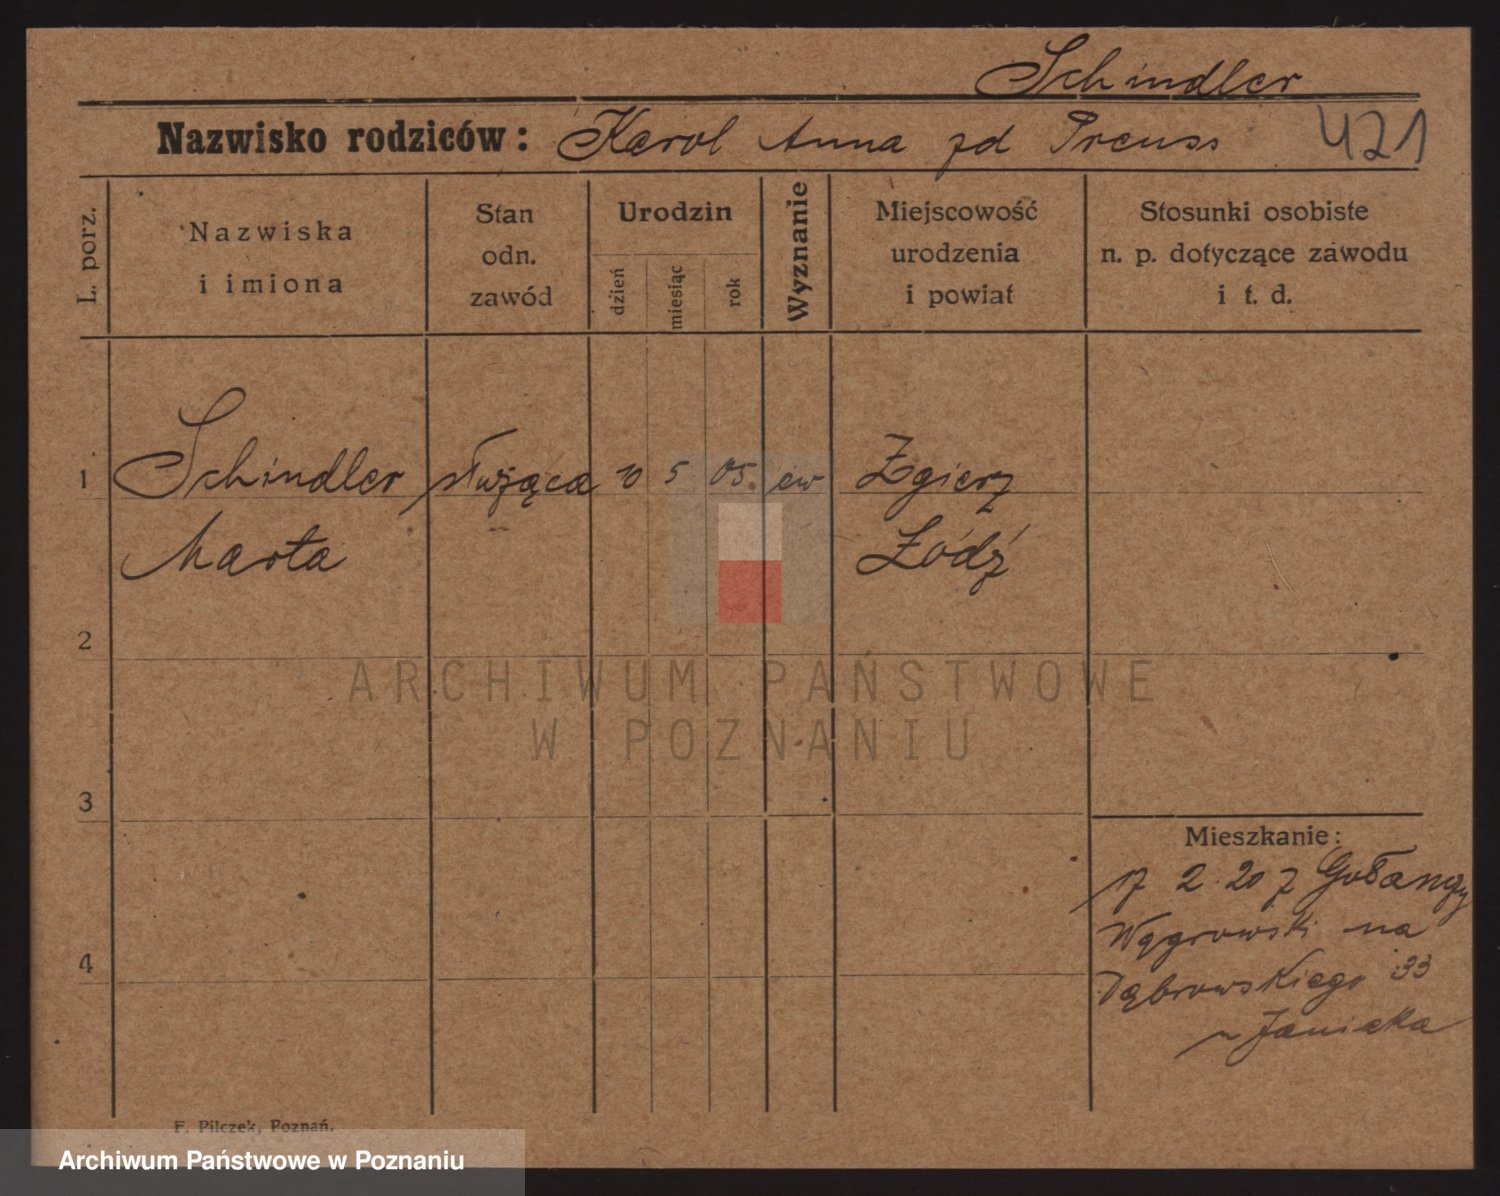 Schindler
Nazwisko rodziców: Karol Anna zd Preuss 421
L. porz.
Nazwiska
i imiona
Stan
odn.
zawód
Urodzin
dzień
miesiąc
rok
Wyznanie
Miejscowość
urodzenia
i powiat
Stosunki osobiste
n. p. dotyczące zawodu
i t. d.
1 Schindler służąca 10 5 05. ew Zgierz
Marta Łódź
2
ARCHIWUM PAŃSTWOWE
W POZNANIU
3
Mieszkanie:
17 2 20 z Gołańczy
Wągrowski na
4 Dąbrowskiego 33
Janicka
F. Pilczek, Poznań.
Archiwum Państwowe w Poznaniu